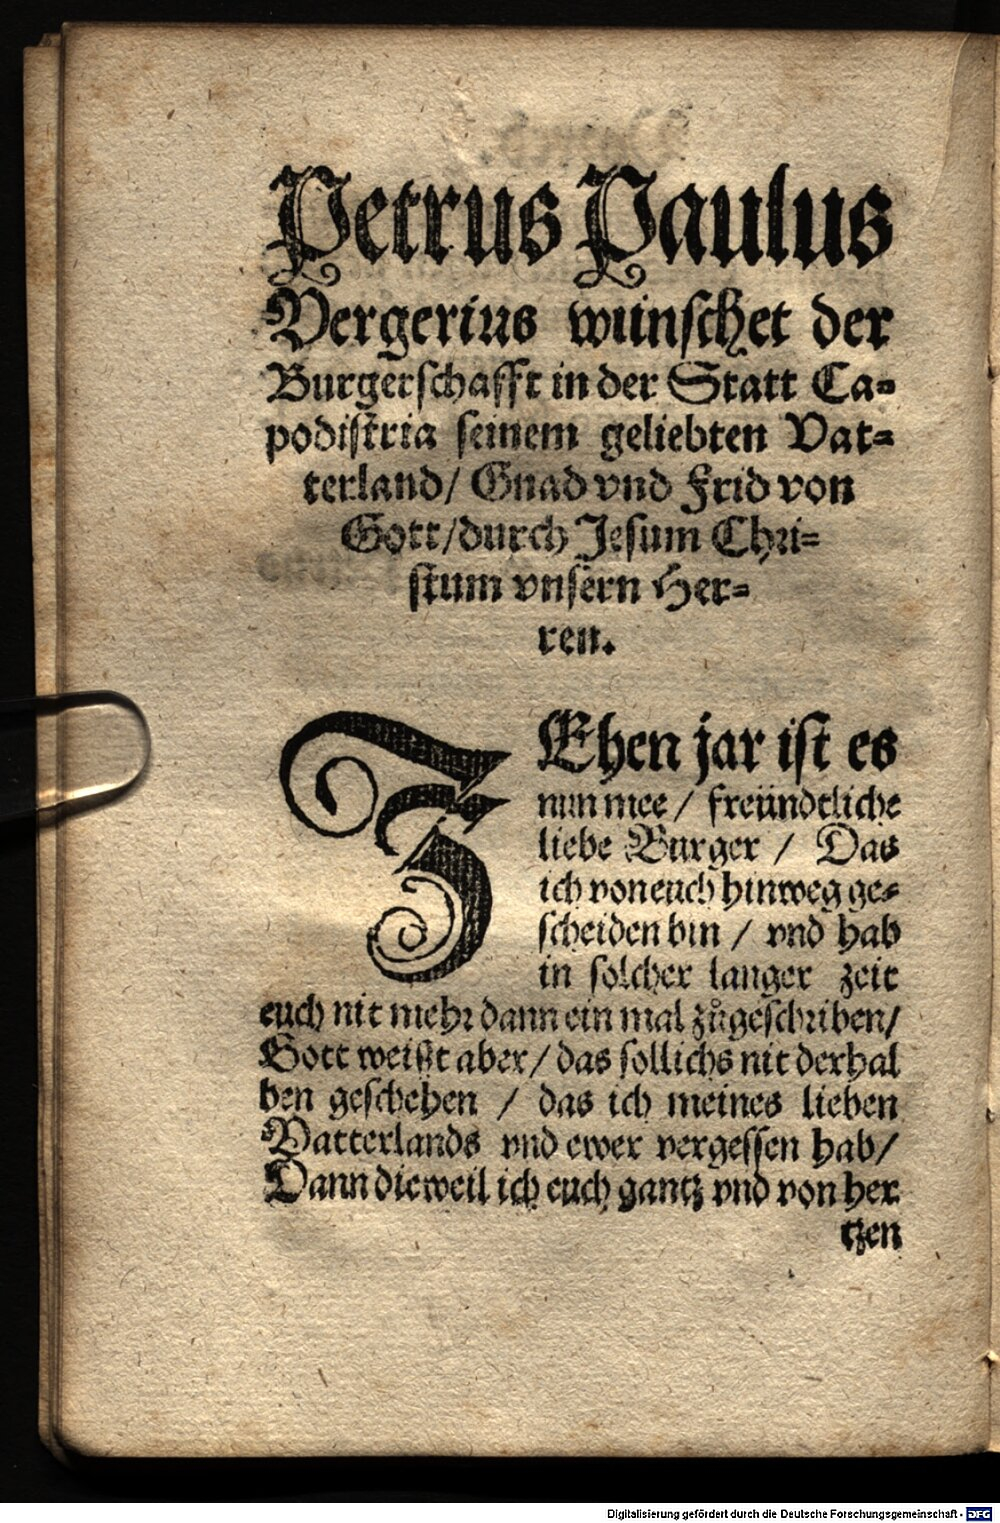 Petrus Paulus
Vergerius wünschet der
Burgerschafft in der Statt Ca=
podistria seinem geliebten Vat=
terland/ Gnad vnd Frid von
Gott/durch Jesum Chri=
stum vnsern Her=
ren.
ZEhen jar ist es
nun mee / freündtliche
liebe Burger / Das
ich von euch hinweg ge=
scheiden bin / vnd hab
in solcher langer zeit
euch nit mehr dann ein mal zůgeschriben/
Gott weißt aber/ das sollichs nit derhal
ben geschehen / das ich meines lieben
Vatterlands vnd ewer vergessen hab/
Dann dieweil ich euch gantz vnd von her
tzen
Digitalisierung gefördert durch die Deutsche Forschungsgemeinschaft - DFG